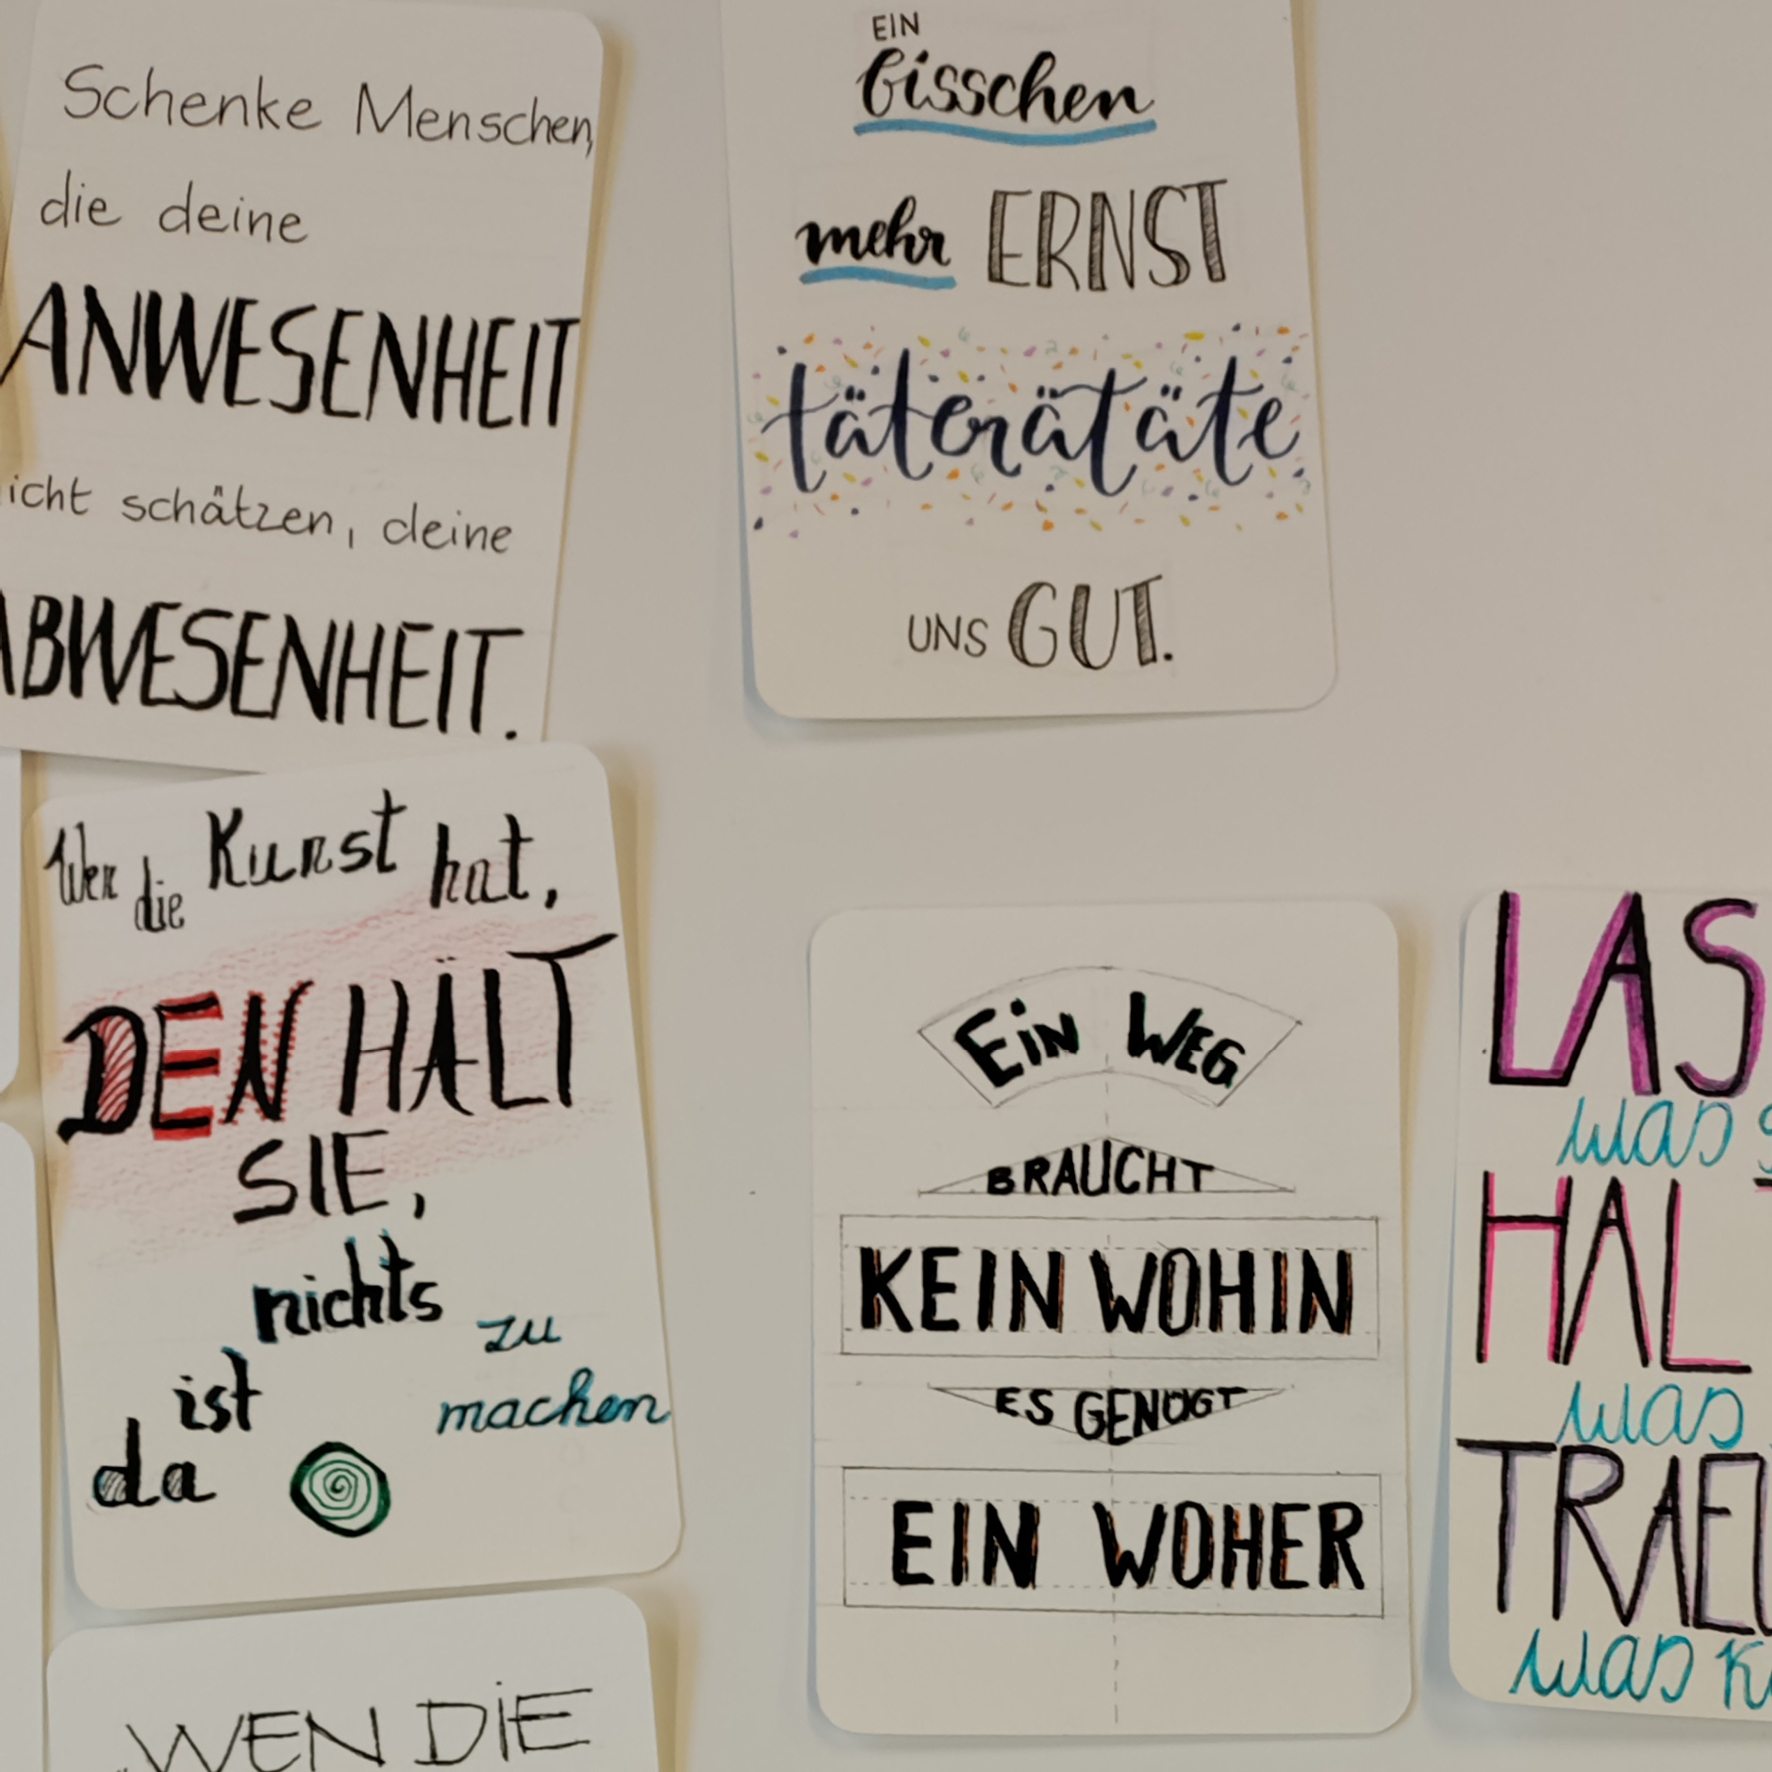 Schenke Menschen,
die deine
ANWESENHEIT
icht schätzen, deine
ABWESENHEIT.
EIN
bisschen
mehr ERNST
täterätäte
UNS GUT.
Wer die Kunst hat,
DEN HÄLT
SIE,
nichts
zu
ist
machen
da
WEN DIE
EIN WEG
BRAUCHT
KEIN WOHIN
ES GENÜGT
EIN WOHER
LAS
was
HAL
was
TRAEU
was K